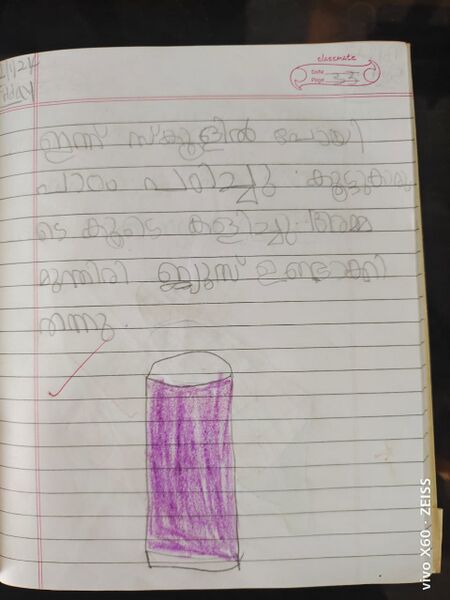 classmate
Date
Page 33
ഇന്ന് സ്കൂളിൽ പോയി
പാഠം പഠിച്ചു. കൂട്ടുകാരു
ടെ കൂടെ കളിച്ചു. അമ്മ
മുന്തിരി ജ്യൂസ് ഉണ്ടാക്കി
തന്നു.
vivo X60 · ZEISS